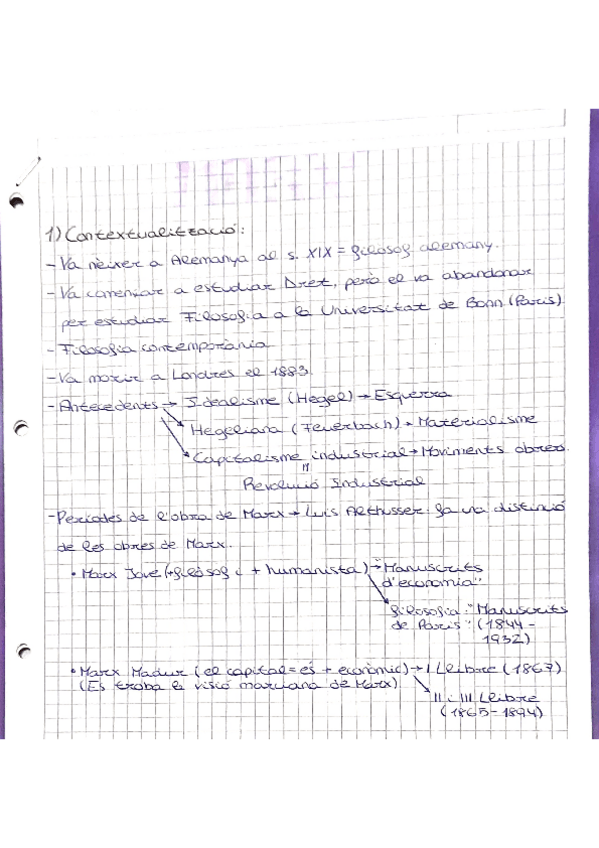 1) Contextualització:
- Va nèixer a Alemanya al s. XIX = filòsof alemany.
- Va començar a estudiar Dret, però el va abandonar
per estudiar Filosofia a la Universitat de Bonn (París).
- Filosofia contemporània
- Va morir a Londres el 1883.
- Antecedents → Idealisme (Hegel) → Esquerra
Hegeliana (Feuerbach) → Materialisme
Capitalisme industrial → Moviments obrers.
=
Revolució Industrial
- Períodes de l'obra de Marx → Luis Althusser: fa una distinció
de les obres de Marx.
• Marx Jove (+ filòsof i + humanista) → "Manuscrits
d'economia"
filosofia: "Manuscrits
de París" (1844-
1932)
• Marx Madur (el capital = és + econòmic) → I Llibre (1867)
(Es troba la visió marxiana de Marx)
II i III Llibre
(1865-1894)